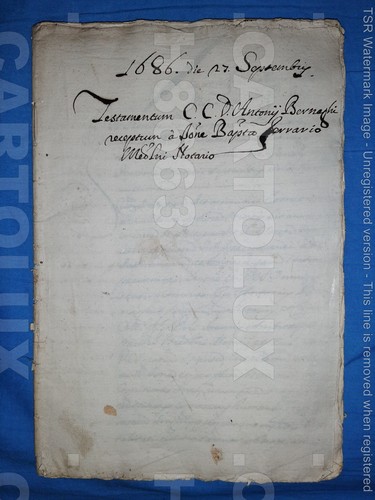 1686. die 27. Septembris.
Testamentum C. C. D. Antonij Bernaghi
receptum à Jone Bapta Ferrario
Medlni Notario
CARTOLUX
H8463
CARTOLUX
TSR Watermark Image - Unregistered version - This line is removed when registered